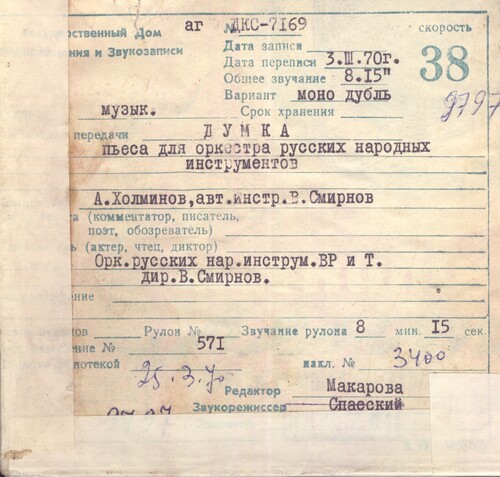 рственный Дом аг № ДКС-7169 скорость
ния и Звукозаписи Дата записи
Дата переписи 3.III.70г. 38
Общее звучание 8.15"
Вариант моно дубль
музык. Срок хранения 9797
передачи ДУМКА
пьеса для оркестра русских народных
инструментов
А.Холминов,авт.инстр.В.Смирнов
а (комментатор, писатель,
поэт, обозреватель)
ь (актер, чтец, диктор)
Орк.русских нар.инструм.ВР и Т.
дир.В.Смирнов.
ение
нов Рулон № Звучание рулона 8 мин. 15 сек.
ение № 571
лиотекой 25.3.70 накл. № 3400
Редактор Макарова
Звукорежиссер Спасский